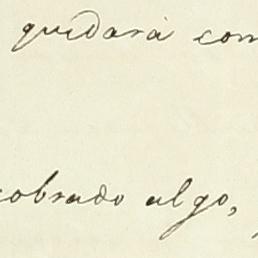 quedará com
cobrado algo,